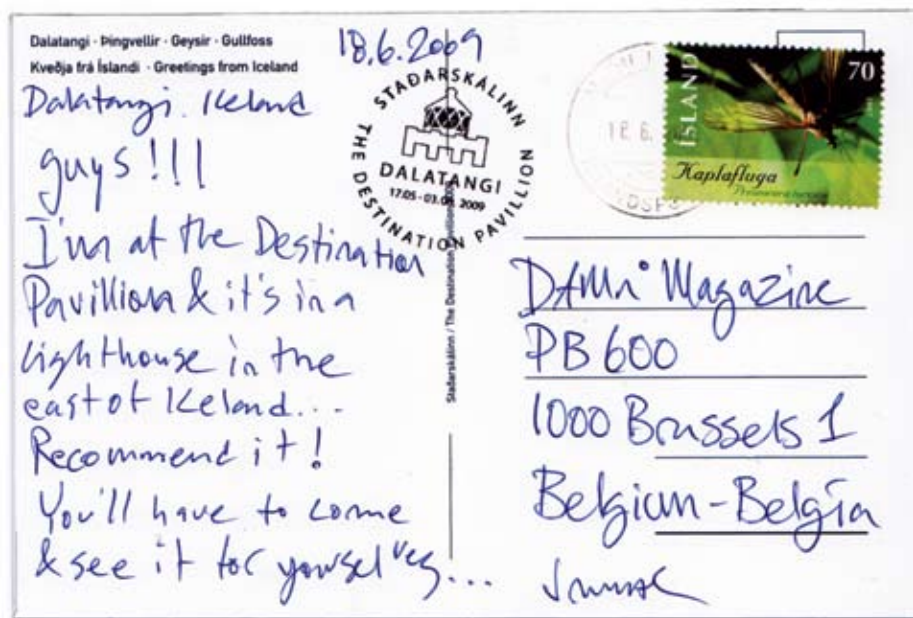 Dalatangi · Þingvellir · Geysir · Gullfoss
Kveðja frá Íslandi · Greetings from Iceland
18.6.2009
Dalatangi. Iceland
guys!!!
I'm at the Destination
Pavillion & it's in a
lighthouse in the
east of Iceland...
Recommend it!
You'll have to come
& see it for yourselves...
STAÐARSKÁLINN
THE DESTINATION PAVILLION
DALATANGI
17.05 - 03.08 2009
Staðarskálinn / The Destination
ÍSLAND
70
Kaplafluga
18.6.
DAMn° Magazine
PB 600
1000 Brussels 1
Belgium - Belgía